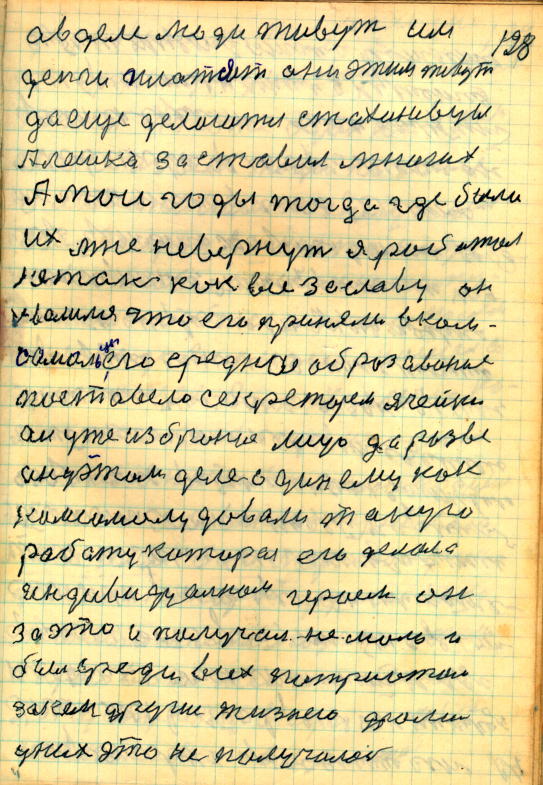 авдели люди живут им 128
денги платят они этим живут
да еще делоютя стаханивцы
Алешка заставил многих
А мои годы тогда где были
их мне невернут я работал
нетак как вы заславу он
хвалимя что его приняли вком-
самольцы его среднои оброзавоние
поставело секреторем ячейки
он уже изброное лицо да розве
он вэтом деле один ему как
комсомолу довали такую
работу которая его делала
индивидуалном героем он
заэто и получал немоло и
был среди всех потриотом
зачем другие жизнею
уних это не получалос